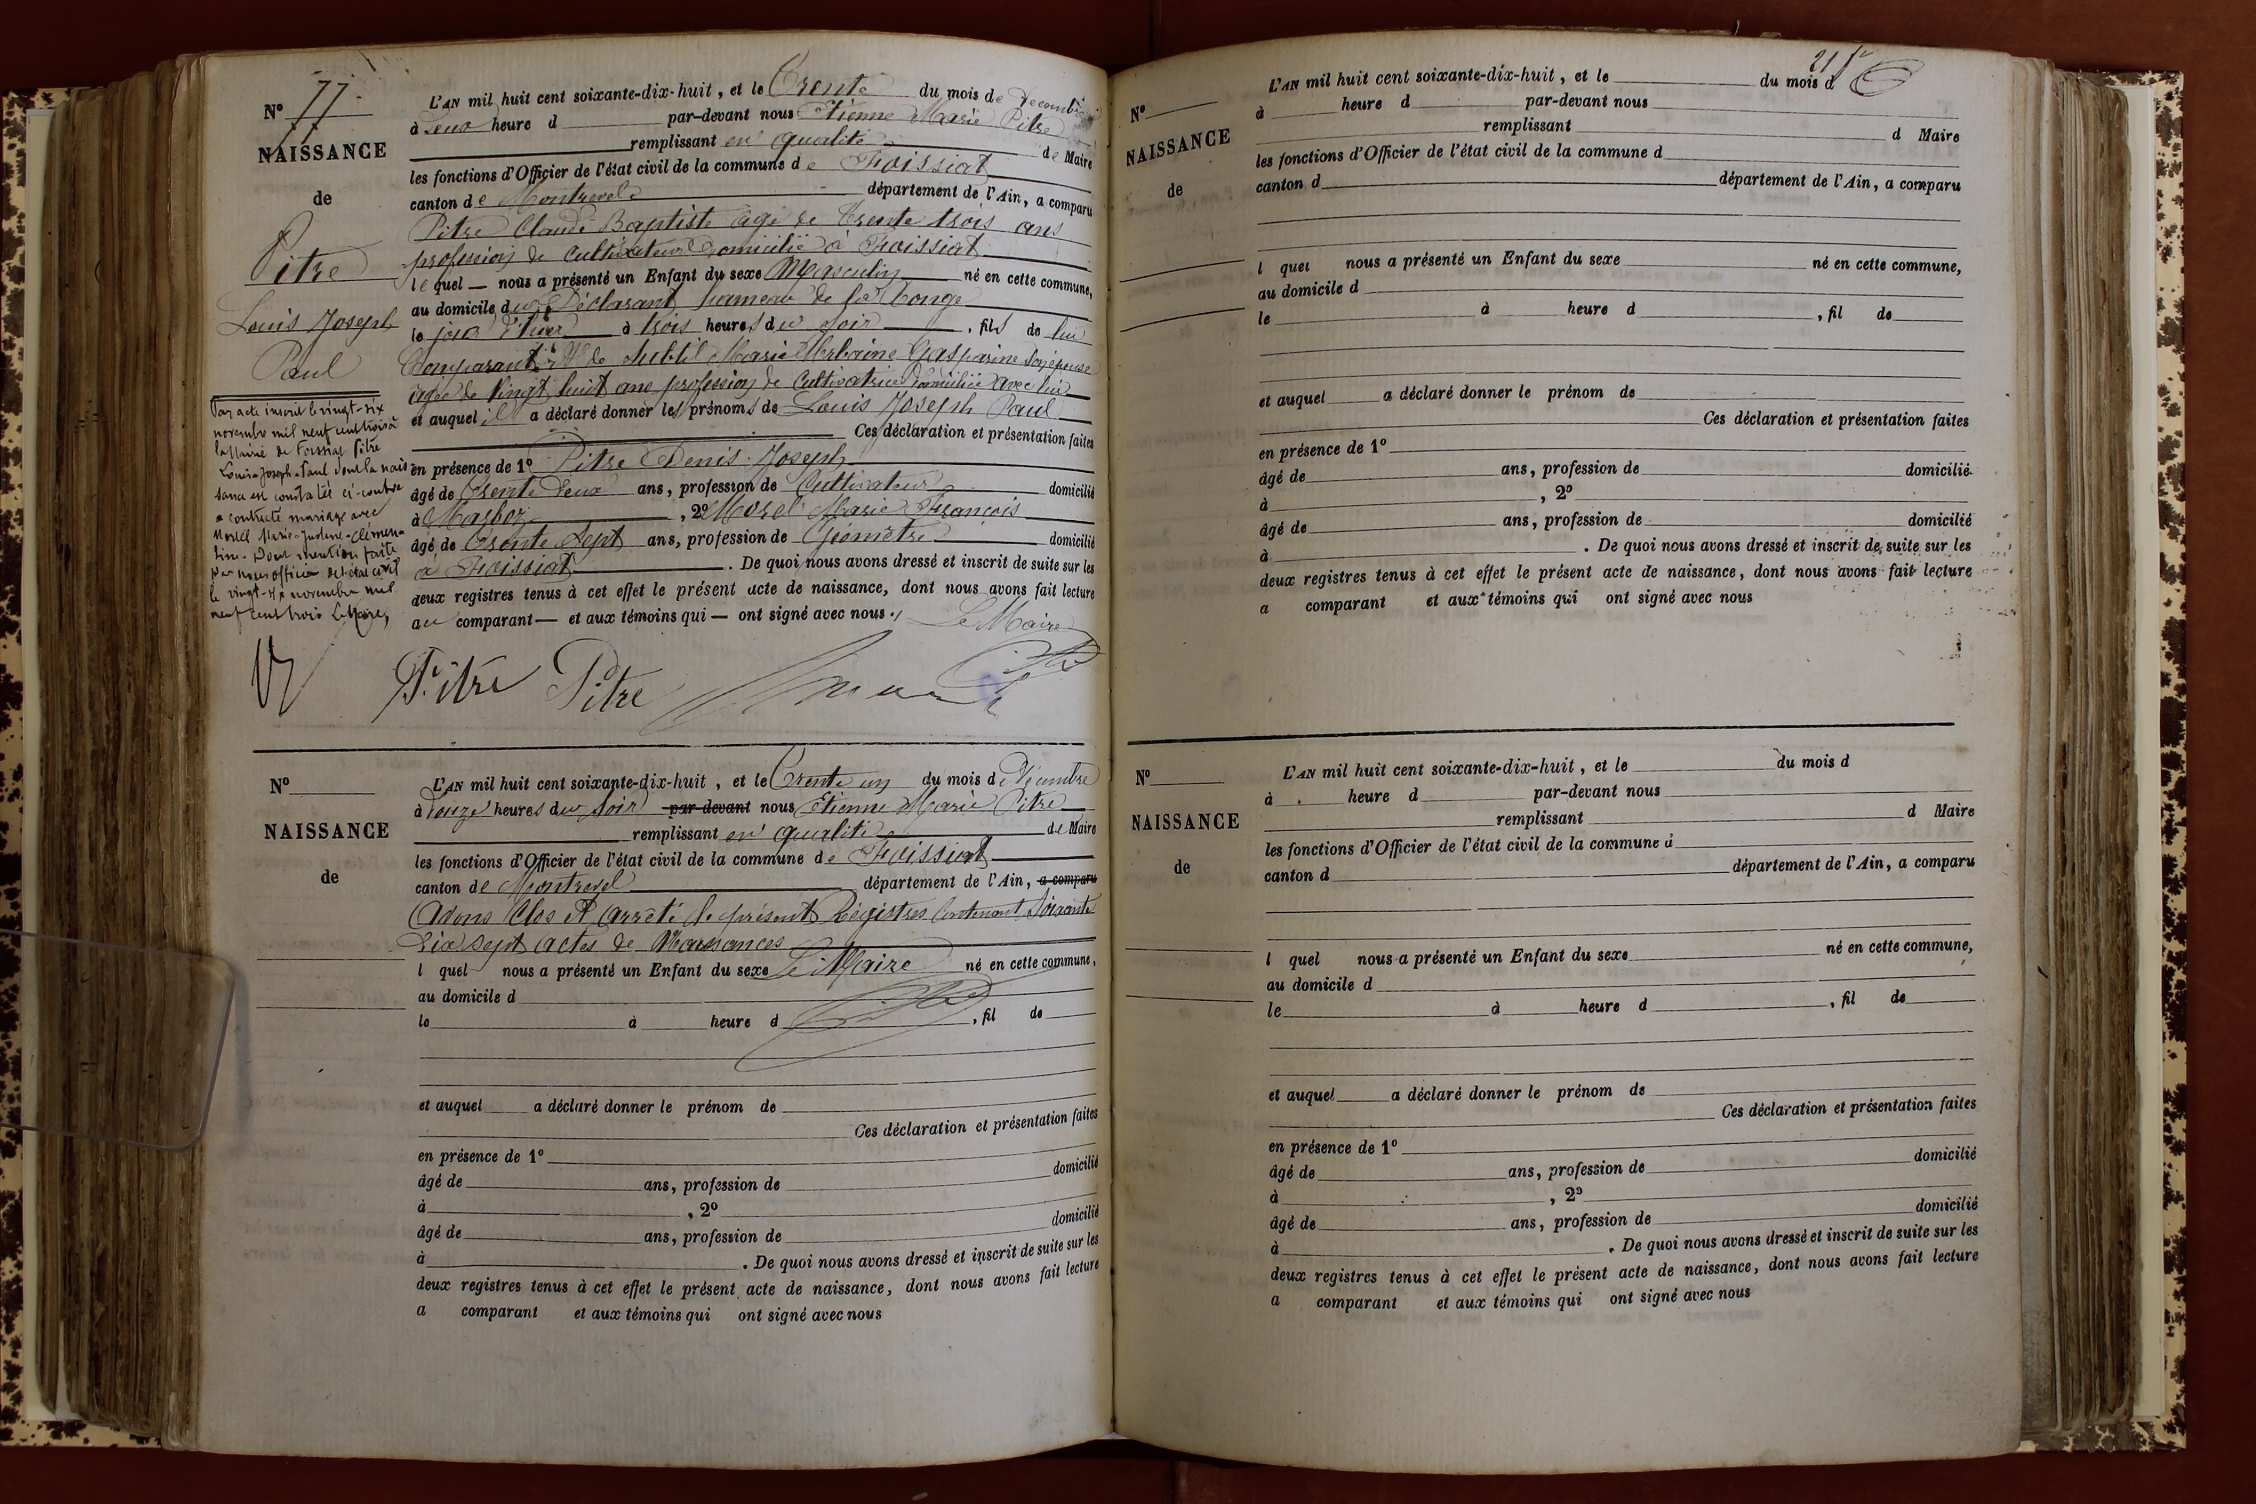 N° 77
NAISSANCE
de
Pitre
Louis Joseph
Paul
Par acte inscrit le vingt-six
novembre mil neuf cent trois à
la Mairie de Foissiat Pitre
Louis-Joseph-Paul dont la nais
sance est constatée ci-contre
a contracté mariage avec
Morel Marie-Justine-Clémen-
tine. Dont mention faite
par nous officier de l'état civil
le vingt-six novembre mil
neuf cent trois Le Maire,
L'AN mil huit cent soixante-dix-huit, et le Trente du mois de Decembre
à Deux heure d par-devant nous Etienne Marie Pitre
remplissant en qualité de Maire
les fonctions d'Officier de l'état civil de la commune de Foissiat
canton de Montrevel département de l'Ain, a comparu
Pitre Claude Baptiste agé de Trente trois ans
profession de Cultivateur Domicilié à Foissiat
lequel — nous a présenté un Enfant du sexe Masculin né en cette commune,
au domicile du Déclarant hameau de la
le jour d'hier à trois heures du soir, fils de lui
Comparant & de Subtil Marie Urbaine Gasparine son épouse
agée de Vingt huit ans profession de Cultivatrice domiciliée avec lui
et auquel il a déclaré donner les prénoms de Louis Joseph Paul
Ces déclaration et présentation faites
en présence de 1° Pitre Denis Joseph
âgé de Trente Deux ans, profession de Cultivateur domicilié
à Marboz, 2° Morel Marie François
âgé de Trente Sept ans, profession de Géomètre domicilié
à Foissiat. De quoi nous avons dressé et inscrit de suite sur les
deux registres tenus à cet effet le présent acte de naissance, dont nous avons fait lecture
au comparant — et aux témoins qui — ont signé avec nous.
Le Maire
Pitre Pitre
N°
NAISSANCE
de
L'AN mil huit cent soixante-dix-huit, et le Trente un du mois de Décembre
à Douze heures du Soir par-devant nous Etienne Marie Pitre
remplissant en qualité de Maire
les fonctions d'Officier de l'état civil de la commune de Foissiat
canton de Montrevel département de l'Ain, a comparu
Avons Clos et arrêté le présent Régistres Contenant Soixante
Dix sept actes de Naissances
l quel nous a présenté un Enfant du sexe Le Maire né en cette commune,
au domicile d
le à heure d, fil de
et auquel a déclaré donner le prénom de
Ces déclaration et présentation faites
en présence de 1°
âgé de ans, profession de domicilié
à, 2°
âgé de ans, profession de domicilié
à. De quoi nous avons dressé et inscrit de suite sur les
deux registres tenus à cet effet le présent acte de naissance, dont nous avons fait lecture
a comparant et aux témoins qui ont signé avec nous
N°
NAISSANCE
de
L'AN mil huit cent soixante-dix-huit, et le du mois d
à heure d par-devant nous
remplissant d Maire
les fonctions d'Officier de l'état civil de la commune d
canton d département de l'Ain, a comparu
l quel nous a présenté un Enfant du sexe né en cette commune,
au domicile d
le à heure d, fil de
et auquel a déclaré donner le prénom de
Ces déclaration et présentation faites
en présence de 1°
âgé de ans, profession de domicilié
à, 2°
âgé de ans, profession de domicilié
à. De quoi nous avons dressé et inscrit de suite sur les
deux registres tenus à cet effet le présent acte de naissance, dont nous avons fait lecture
a comparant et aux témoins qui ont signé avec nous
N°
NAISSANCE
de
L'AN mil huit cent soixante-dix-huit, et le du mois d
à heure d par-devant nous
remplissant d Maire
les fonctions d'Officier de l'état civil de la commune d
canton d département de l'Ain, a comparu
l quel nous a présenté un Enfant du sexe né en cette commune,
au domicile d
le à heure d, fil de
et auquel a déclaré donner le prénom de
Ces déclaration et présentation faites
en présence de 1°
âgé de ans, profession de domicilié
à, 2°
âgé de ans, profession de domicilié
à. De quoi nous avons dressé et inscrit de suite sur les
deux registres tenus à cet effet le présent acte de naissance, dont nous avons fait lecture
a comparant et aux témoins qui ont signé avec nous